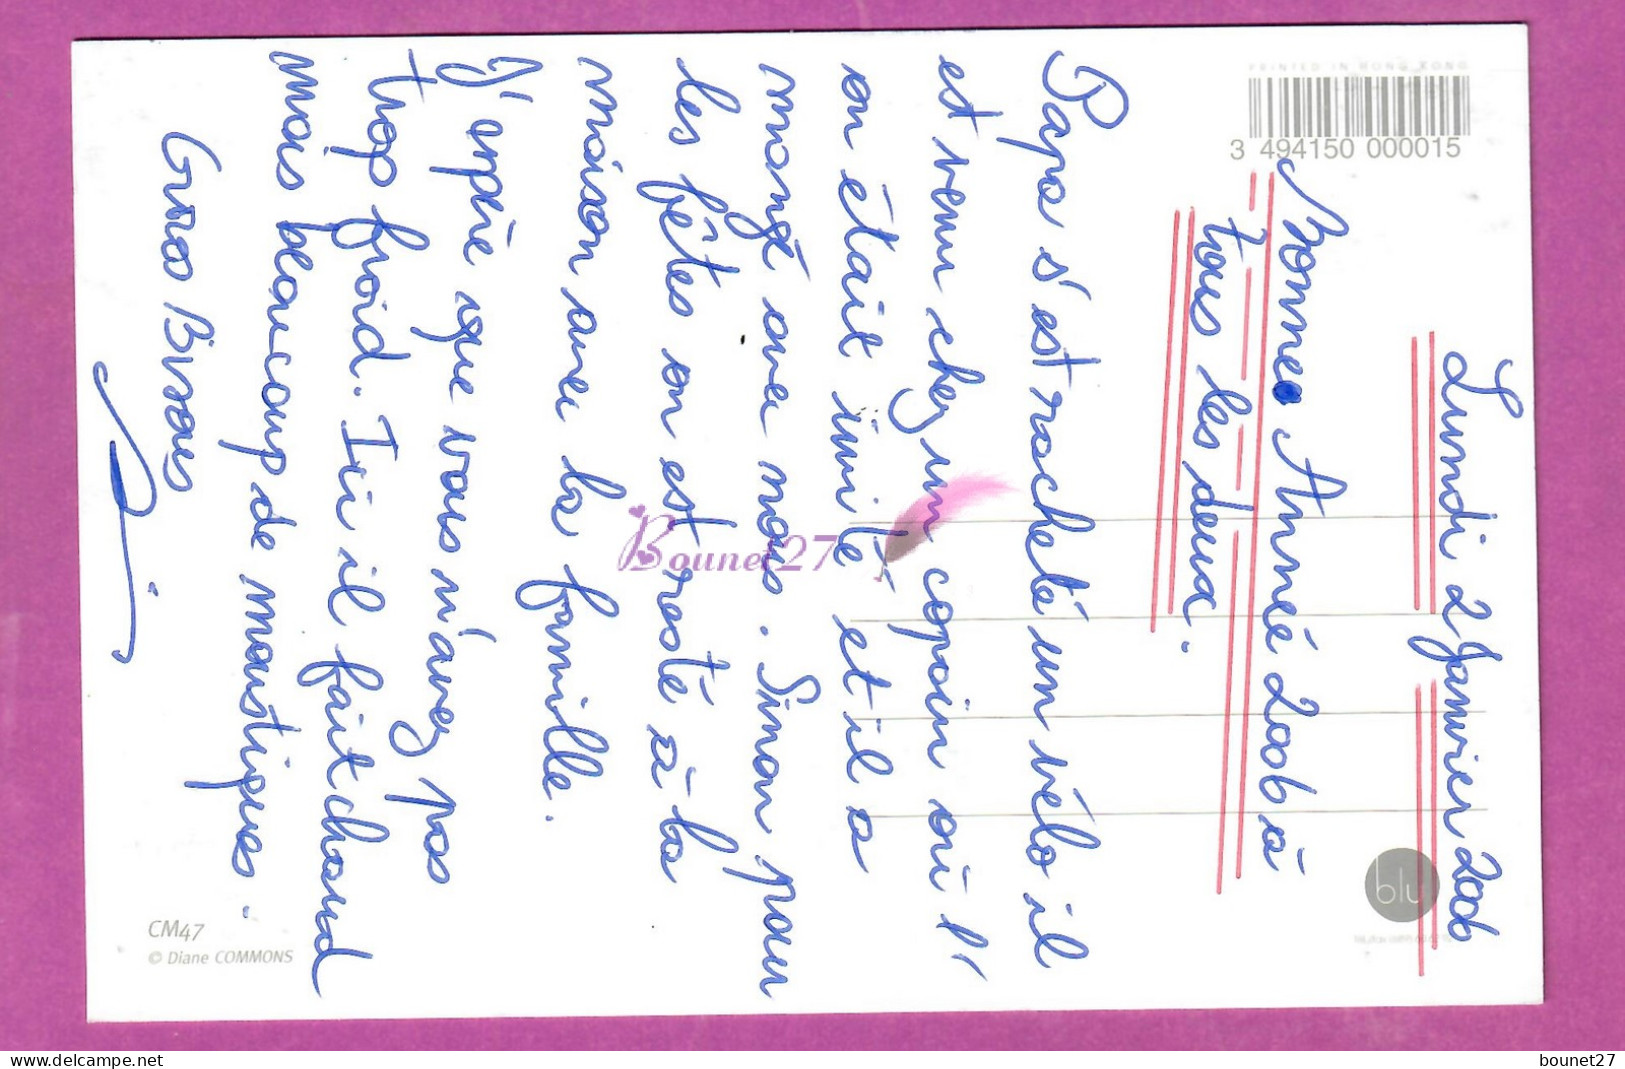 Lundi 2 Janvier 2006
Bonne Année 2006 à
tous les deux.
Papa s'est racheté un vélo il
est venu chez un copain où l'
on était invité et il a
mangé avec nous. Sinon pour
les fêtes on est resté à la
maison avec la famille.
J'espère que vous n'avez pas
trop froid. Ici il fait chaud
mais beaucoup de moustiques.
Gros Bisous
PRINTED IN HONG KONG
3 494150 000015
blu
CM47
© Diane COMMONS
Bounet27
delcampe.net
bounet27